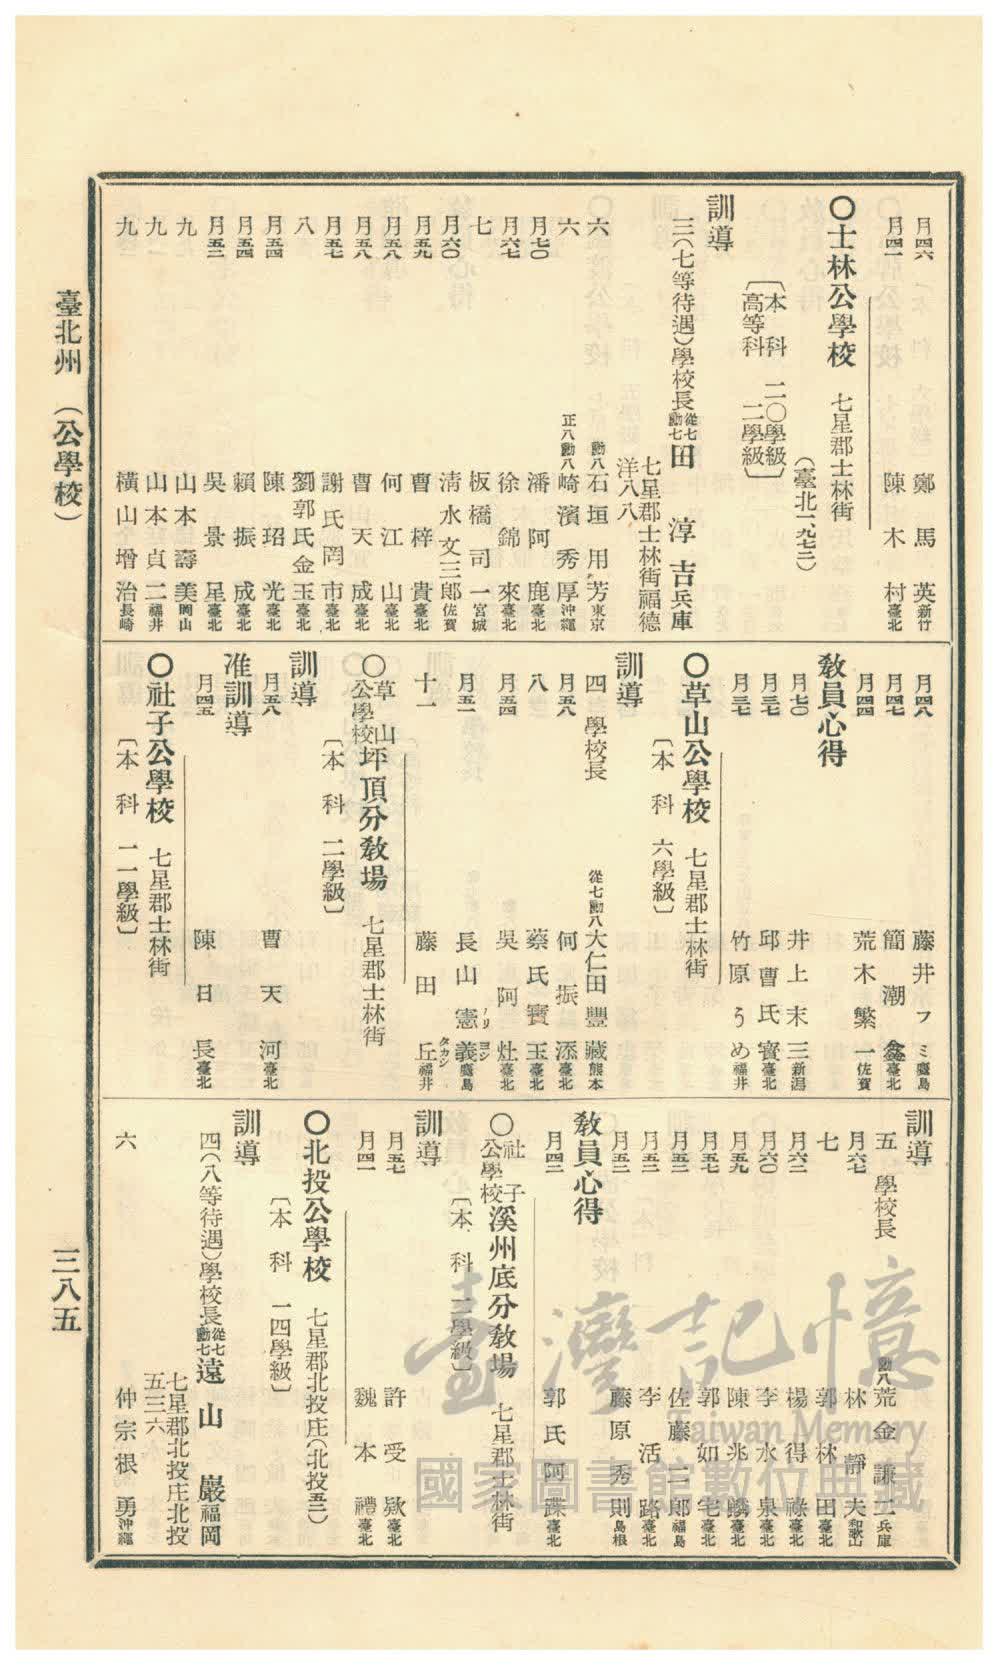 月四六 鄭馬英新竹
月四一 陳木村臺北
〇士林公學校 七星郡士林街
(臺北一、九七二)
〔本科 二〇學級
高等科 二學級〕
訓導
三(七等待遇)學校長 從七勳七 田淳吉兵庫
七星郡士林街福德
洋八八
六 勳八 石垣用芳東京
六 正八勳八 崎濱秀厚沖繩
月七〇 潘阿鹿臺北
月六七 徐錦來臺北
七 板橋司一宮城
月六〇 清水文三郎佐賀
月五九 曹梓貴臺北
月五八 何江山臺北
月五八 曹天成臺北
月五七 謝氏罔市臺北
八 劉郭氏金玉臺北
月五四 陳炤光臺北
月五四 賴振成臺北
月五三 吳景星臺北
九 山本壽美岡山
九 山本貞二福井
九 橫山增治長崎
月四八 藤井フミ廣島
月四七 簡潮鑫臺北
月四四 荒木繁一佐賀
教員心得
月七〇 井上末三新潟
月三七 邱曹氏寶臺北
月三七 竹原うめ福井
〇草山公學校 七星郡士林街
〔本科 六學級〕
訓導
四 學校長 從七勳八 大仁田豐藏熊本
月五八 何振添臺北
八 蔡氏寶玉臺北
月五四 吳阿灶臺北
月五一 長山憲義廣島 ノリヨシ
十一 藤田丘福井 タカシ
〇草山公學校坪頂分教場 七星郡士林街
〔本科 二學級〕
訓導
月五八 曹天河臺北
准訓導
月四五 陳日長臺北
〇社子公學校 七星郡士林街
〔本科 一一學級〕
訓導
五 學校長 勳八 荒金謙二兵庫
月六七 林靜夫和歌山
七 郭林田臺北
月六二 楊得祿臺北
月六〇 李水泉臺北
月五九 陳兆麟臺北
月五七 郭如宅臺北
月五三 佐藤二郎福島
月五三 李活路臺北
月五二 藤原秀則島根
教員心得
月四二 郭氏阿蹀臺北
〇社子公學校溪州底分教場 七星郡士林街
〔本科 二學級〕
訓導
月五七 許受欵臺北
月四一 魏本禮臺北
〇北投公學校 七星郡北投庄(北投五三)
〔本科 一四學級〕
訓導
四(八等待遇)學校長 從七勳七 遠山巖福岡
七星郡北投庄北投
五三六
六 仲宗根勇沖繩
臺北州 (公學校)
三八五
臺灣記憶
Taiwan Memory
國家圖書館數位典藏